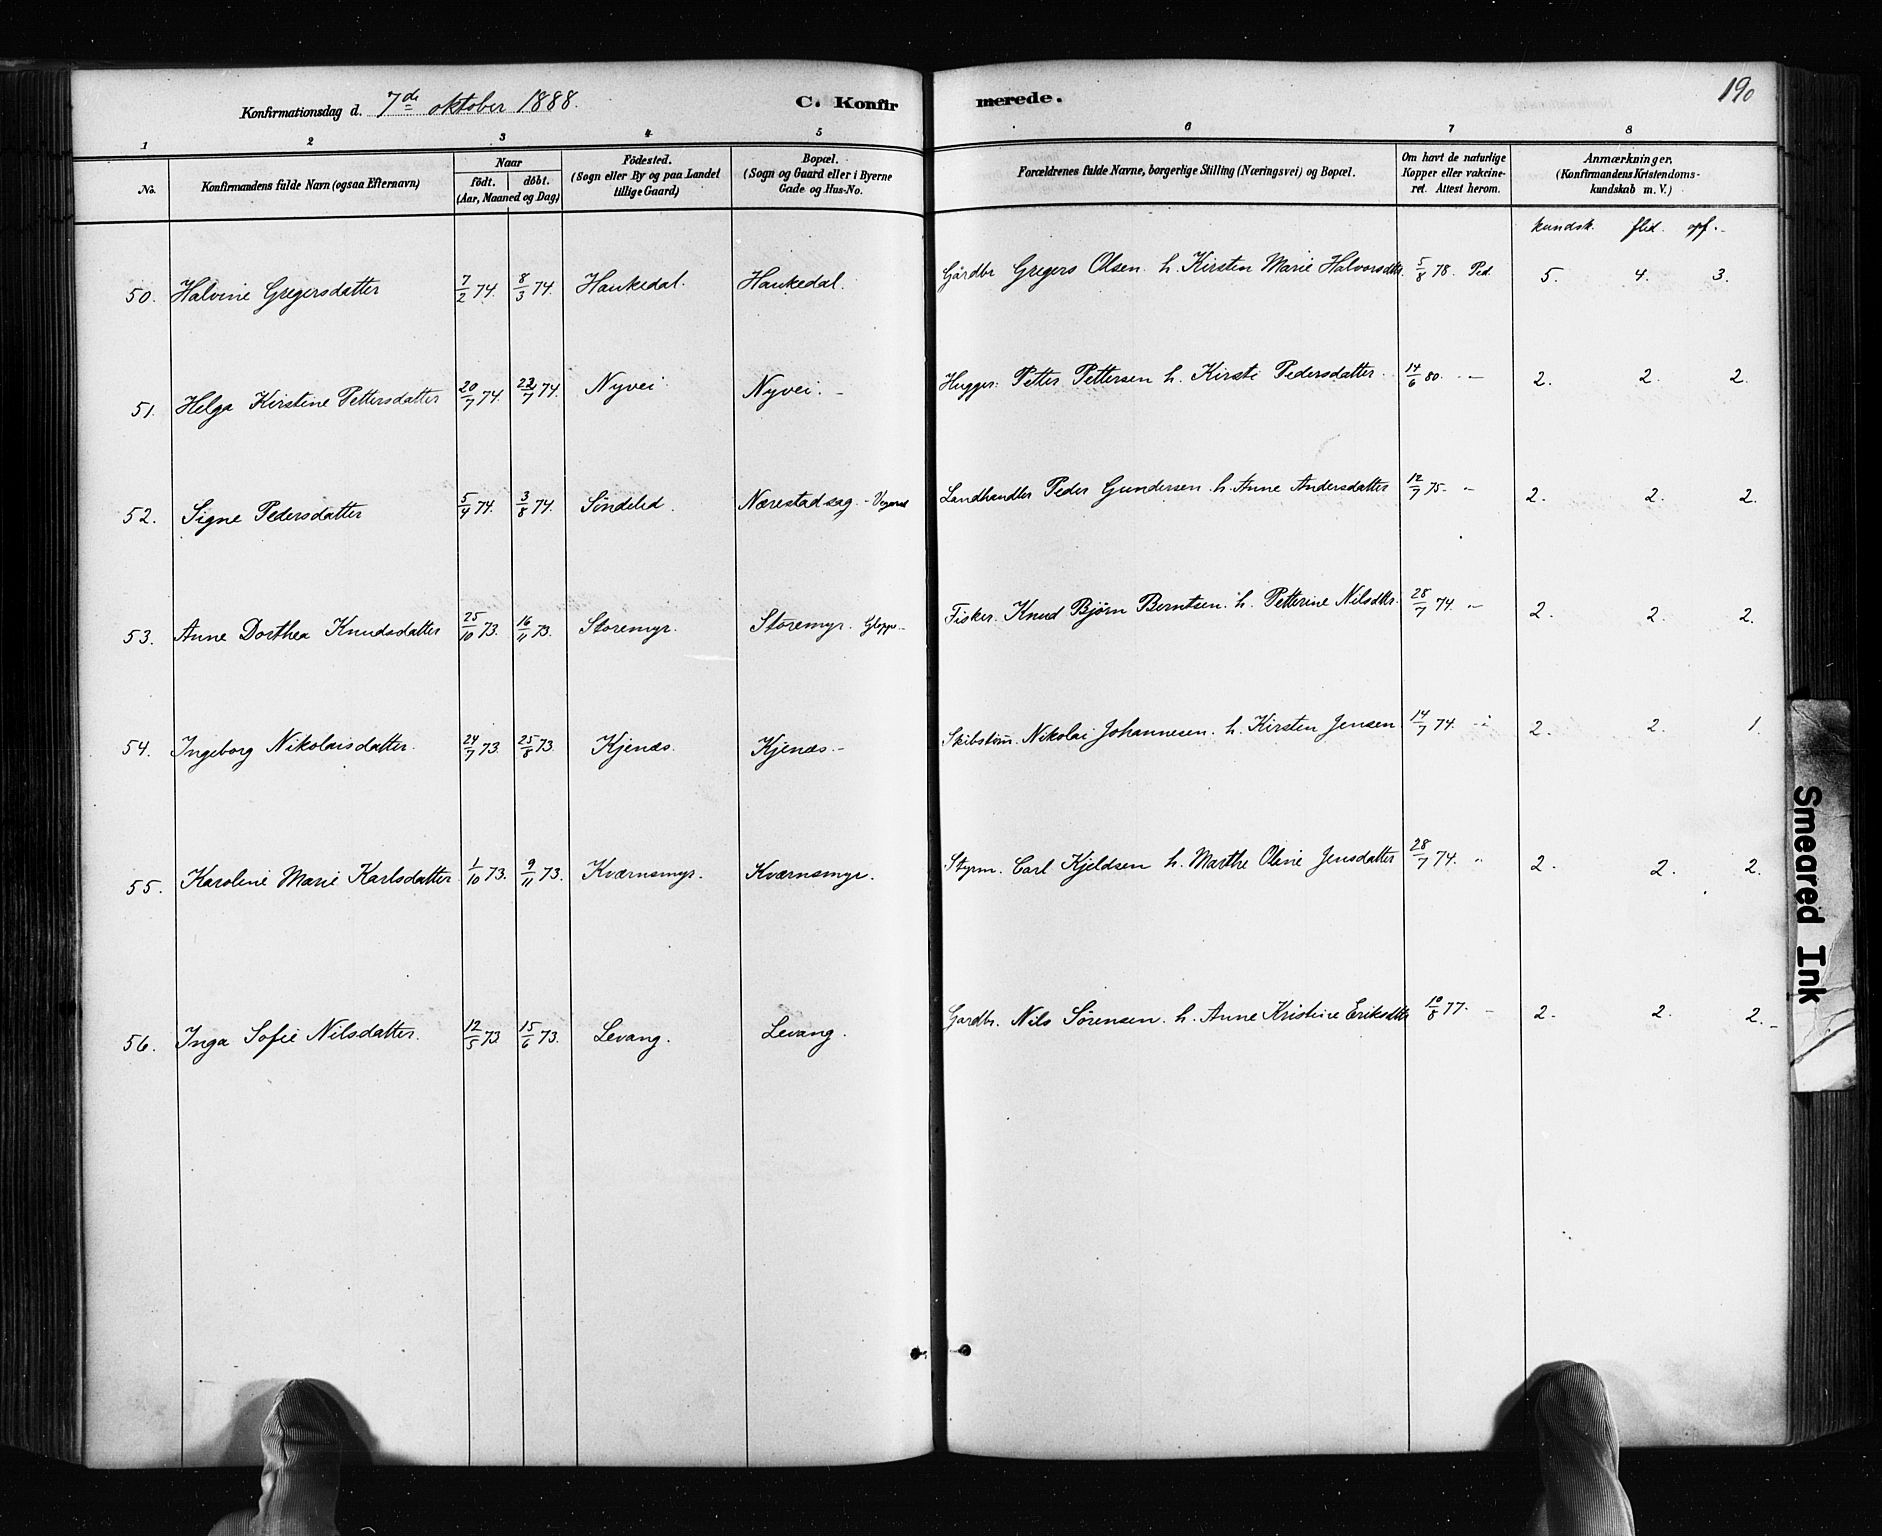 190
Konfirmationsdag d. 7de oktober 1888. C. Konfir merede.
1 2 3 4 5 6 7 8
No. Konfirmandens fulde Navn (ogsaa Efternavn) Naar født. døbt. (Aar, Maaned og Dag) Fødested. (Sogn eller By og paa Landet tillige Gaard) Bopæl. (Sogn og Gaard eller i Byerne Gade og Hus-No. Forældrenes fulde Navne, borgerlige Stilling (Næringsvei) og Bopæl. Om havt de naturlige Kopper eller vakcineret. Attest herom. Anmærkninger. (Konfirmandens Kristendomskundskab m. V.)
kundsk. flid. opf.
50. Halvine Gregersdatter 7/2 74. 8/3 74. Haukedal. Haukedal. Gårdbr Gregers Olsen h. Kirsten Marie Halvorsdtr. 5/8 78. Ped. 5. 4. 3.
51. Helga Kirstine Pettersdatter 20/7 74. 22/7 74. Nyvei. Nyvei. - Hugger. Petter Pettersen h. Kirsti Pedersdatter. 14/6 80. - 2. 2. 2.
52. Signe Pedersdatter 5/4 74. 3/8 74. Søndeled. Nærestadsag - Landhandler Peder Gundersen h. Anne Andersdatter 12/7 75. " 2. 2. 2.
53. Anne Dorthea Knudsdatter 25/10 73. 16/11 73. Storemyr. Storemyr. Fisker. Knud Bjørn Berntsen. h. Petterine Nilsdtr. 28/7 74. " 2. 2. 2.
54. Ingeborg Nikolaisdatter. 24/7 73. 25/8 73. Kjenæs. Kjenæs. - Skibstøm. Nikolai Johannesen. h. Kirsten Jensen 14/7 74. 2. 2. 1.
55. Karoline Marie Karlsdatter 1/10 73. 9/11 73. Kværnsmyr. Kværnsmyr. Styrm. Carl Kjeldsen h. Marthe Oline Jensdatter 28/7 74. " 2. 2. 2.
56. Inga Sofie Nilsdatter. 12/5 73 15/6 73. Levang. Levang. Gardbr. Nils Sørensen. h. Anne Kristine Eriksdtr 10/8 77. - 2. 2. 2. -
Smeared Ink